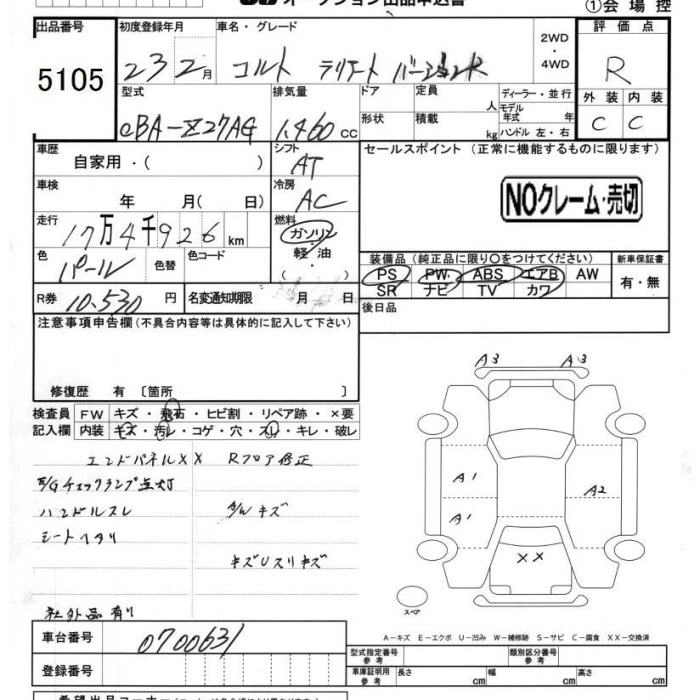 オークション出品申込書 ①会場控
出品番号 初度登録年月 車名・グレード 評価点
5105 23 2月 コルト ラリアート バージョンR 2WD ・ 4WD R
型式 排気量 ドア 定員 人 ディーラー・並行 外装 内装
CBA-Z27AG 1,460 cc 形状 積載 kg モデル年式 年 C C
ハンドル 左・右
車歴 自家用・( ) シフト AT セールスポイント(正常に機能するものに限ります)
車検 年 月( 日) 冷房 AC NOクレーム・売切
走行 17万4千926km 燃料 ガソリン
軽油
・( )
色 パール 色替 色コード 装備品(純正品に限り○をつけてください) 新車保証書
PS PW ABS エアB AW 有・無
R券 10,530円 名変通知期限 月 日 SR ナビ TV カワ
注意事項申告欄(不具合内容等は具体的に記入して下さい) 後日品
修復歴 有 〔箇所 〕
検査員 FW キズ・飛石・ヒビ割・リペア跡・×要
記入欄 内装 キズ・汚レ・コゲ・穴・スレ・キレ・破レ
エンドパネルXX Rフロア修正
E/Gチェックランプ点灯
ハンドルスレ A/W キズ
シートヘタリ
キズUスリキズ
社外品有り
A3 A3
A1 A2
A1
XX
スペア
A-キズ E-エクボ U-凹み W-補修跡 S-サビ C-腐食 XX-交換済
車台番号 0700631 型式指定番号 参考 類別区分番号 参考
登録番号 車庫証明用 参考 長さ cm 幅 cm 高さ cm